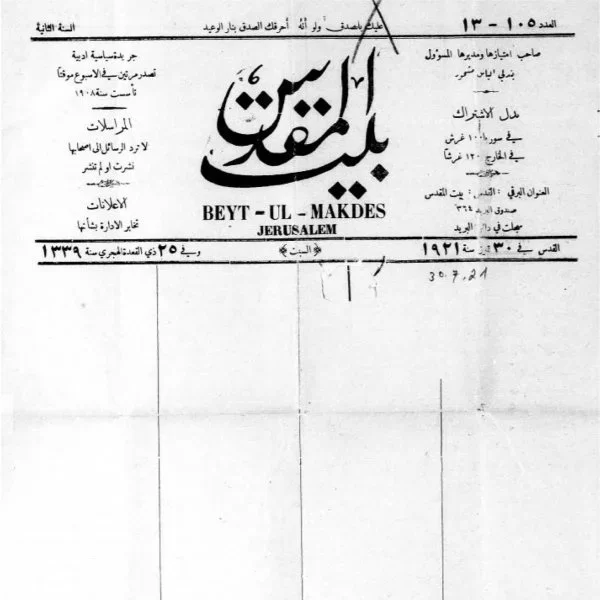 العدد ١٠٥ - ١٣
عليك بالصدق ولو أنه أحرقك الصدق بنار الوعيد
السنة الثانية
صاحب امتيازها ومديرها المسؤول
بندلي الياس مشحور
بدل الاشتراك
في سوريا ١٠٠ غرش
في الخارج ١٢٠ غرشا
العنوان البرقي : القدس : بيت المقدس
صندوق البريد ٣٦٤
سجلت في دائرة البريد
بيت المقدس
BEYT - UL - MAKDES
JERUSALEM
جريدة سياسية ادبية
تصدر مرتين في الاسبوع موقتا
تأسست سنة ١٩٠٨
المراسلات
لا ترد الرسائل الى اصحابها
نشرت او لم تنشر
الاعلانات
تخابر الادارة بشأنها
القدس في ٣٠ تموز سنة ١٩٢١
﴿السبت﴾
وفي ٢٥ ذي القعدة الهجري سنة ١٣٣٩
30.7.21